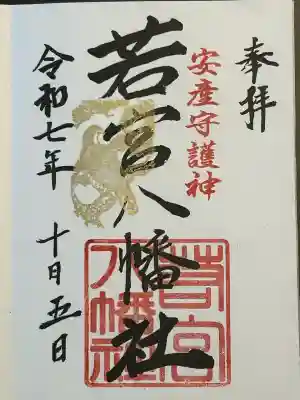 奉拝
安産守護神
若宮八幡社
令和七年 十月五日
若宮
八幡社